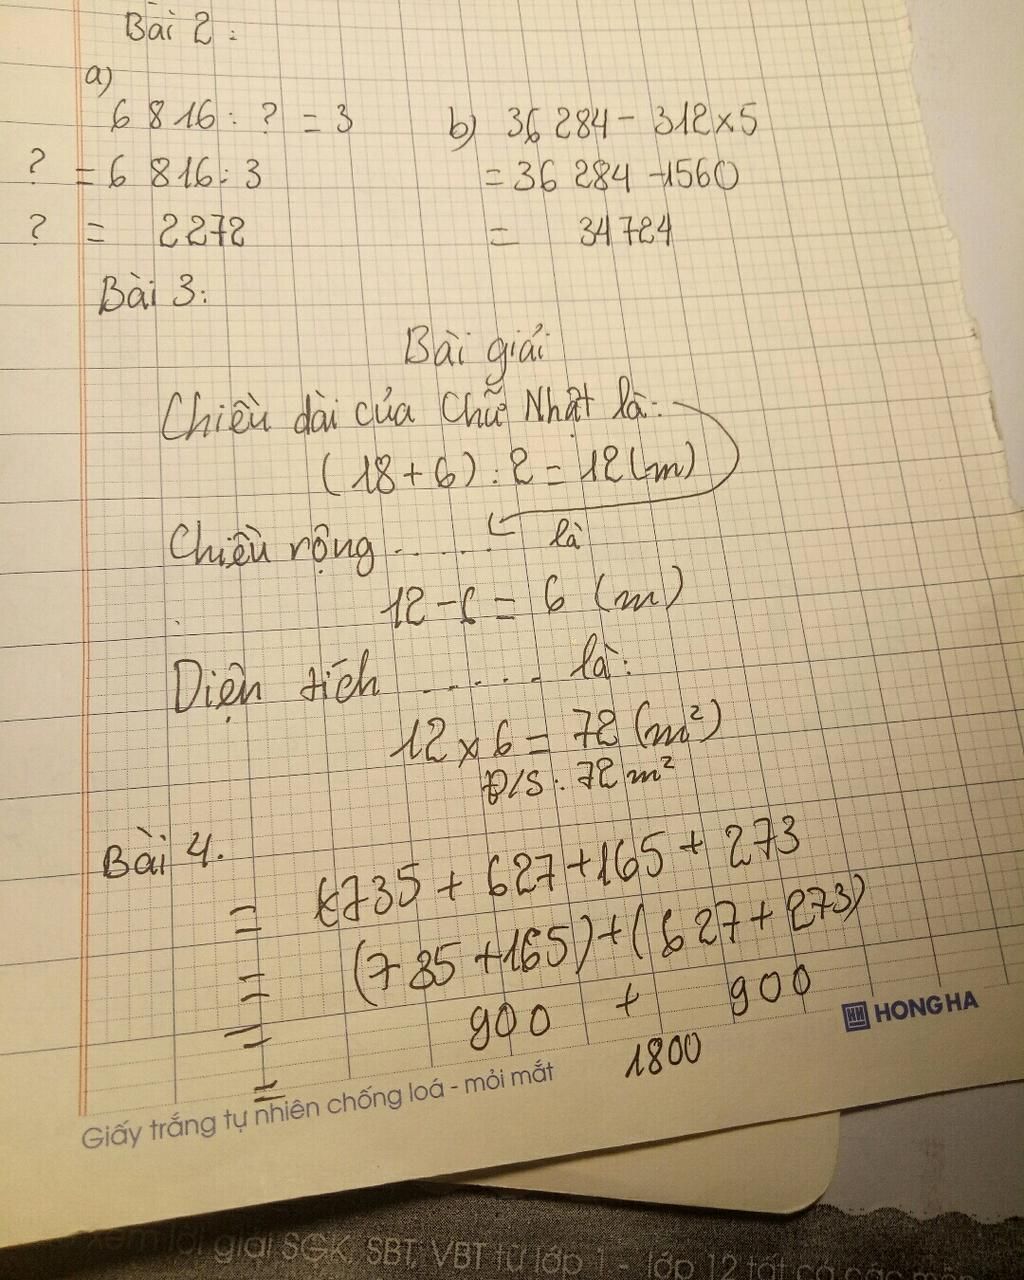 Bài 2:
a)
6 816 : ? = 3
? = 6 816 : 3
? = 2272
b) 36 284 - 312 x 5
= 36 284 - 1560
= 34 724
Bài 3:
Bài giải
Chiều dài của Chữ Nhật là:
(18 + 6) : 2 = 12 (m)
Chiều rộng ...... là
12 - 6 = 6 (m)
Diện tích ...... là:
12 x 6 = 72 (m²)
Đ/S : 72 m²
Bài 4.
= 735 + 627 + 165 + 273
= (735 + 165) + (627 + 273)
= 900 + 900
= 1800
HONG HA
Giấy trắng tự nhiên chống loá - mỏi mắt
xem lời giải SGK, SBT, VBT từ lớp 1 - lớp 12 tất cả các